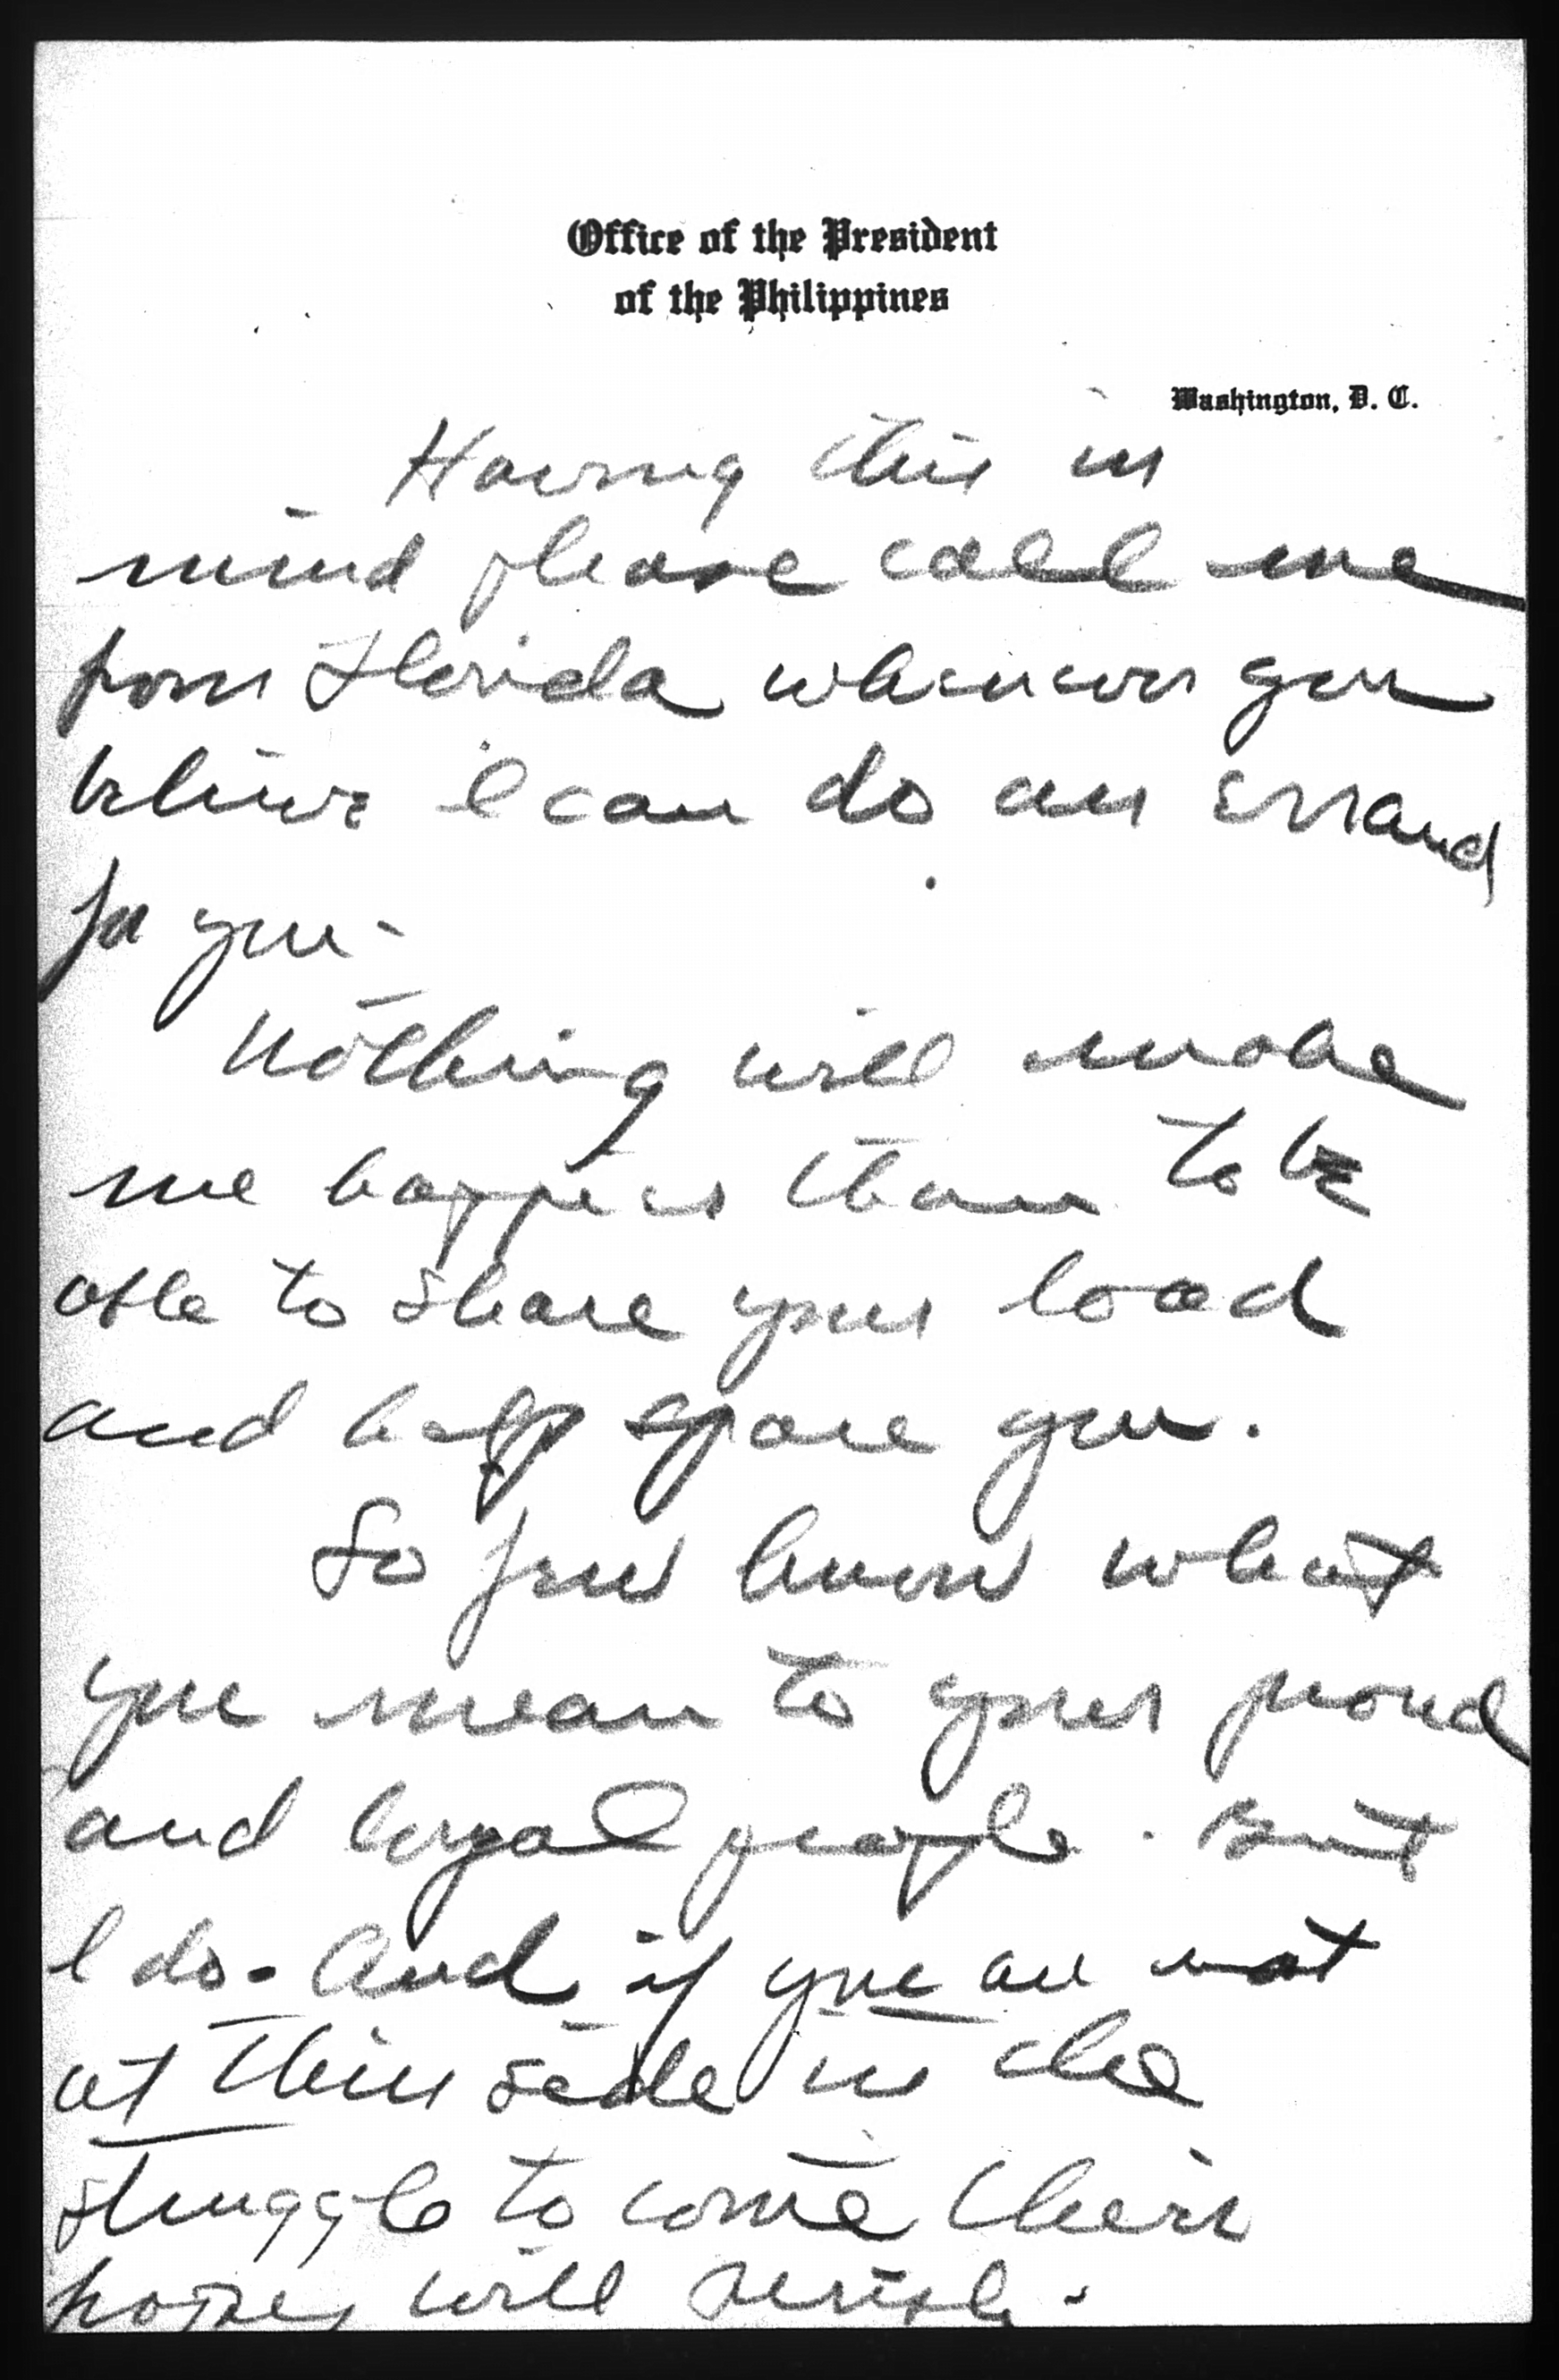 Office of the President
of the Philippines
Washington, D. C.
Having this in
mind please call me
from Florida whenever you
believe I can do an errand
for you -
Nothing will make
me happier than to be
able to share your load
and help spare you.
So few know what
you mean to your proud
and loyal people. But
I do. And if you are not
at their side in the
struggle to come their
hopes will perish.